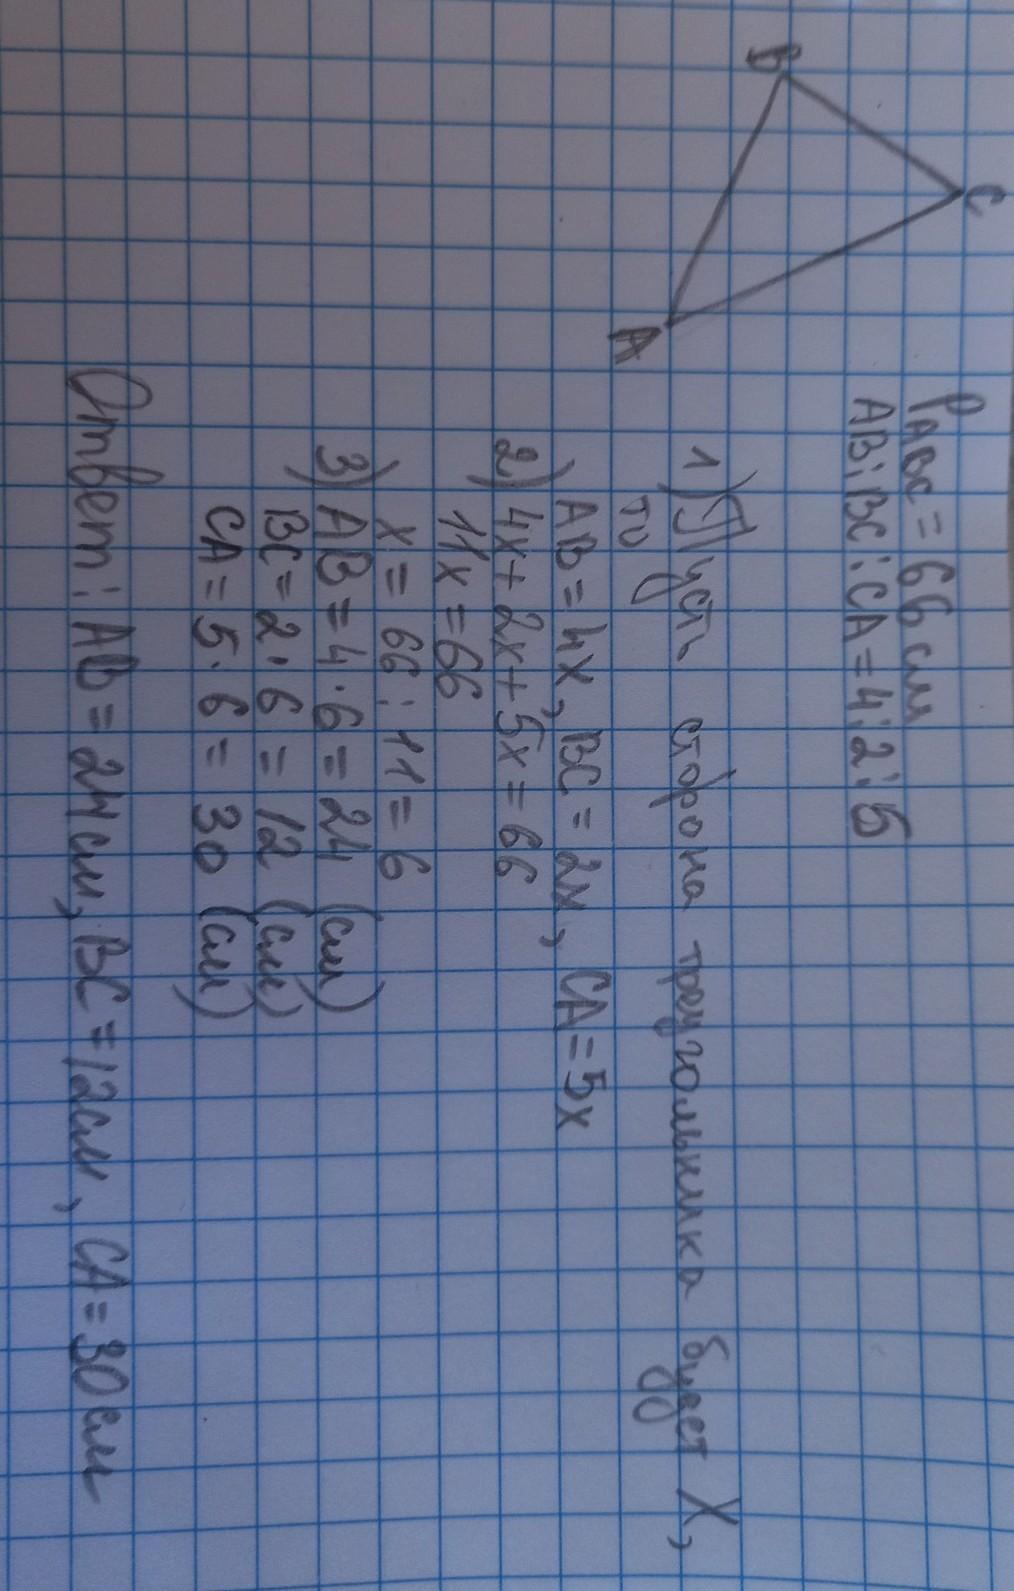 C
B
A
PABC = 66 см
AB:BC:CA = 4:2:5
1) Пусть сторона треугольника будет X,
то
AB = 4x, BC = 2x, CA = 5x
2) 4x + 2x + 5x = 66
11x = 66
x = 66 : 11 = 6
3) AB = 4 · 6 = 24 (см)
BC = 2 · 6 = 12 (см)
CA = 5 · 6 = 30 (см)
Ответ: AB = 24 см, BC = 12 см, CA = 30 см